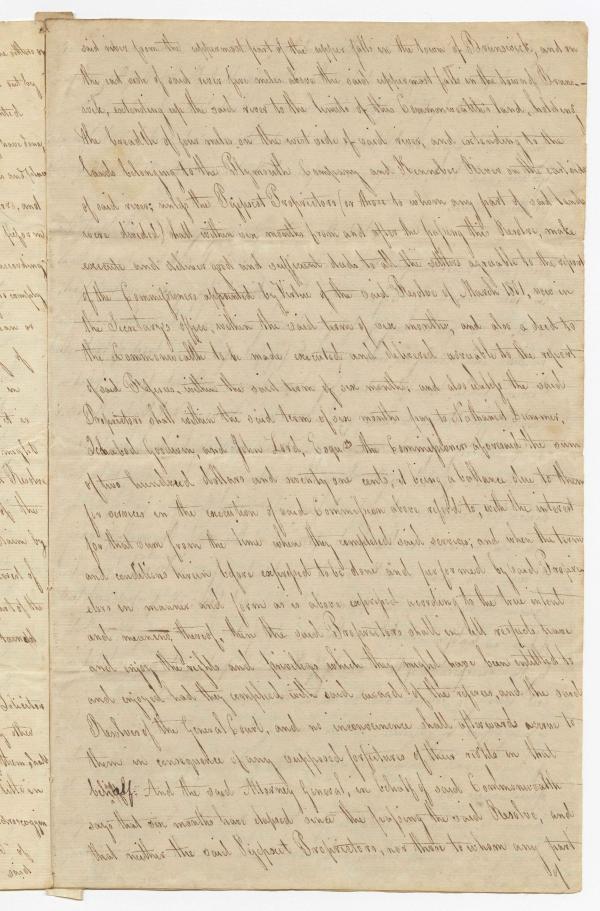 said river from the uppermost part of the upper falls in the town of Brunswick, and on
the east side of said river five miles above the said uppermost falls in the town of Bruns-
wick, extending up the said river to the limits of this Commonwealth's land, holding
the breadth of four miles on the west side of said river, and extending to the
lands belonging to the Plymouth Company and Kennebec River on the east side
of said river; unless the Pejepscot Proprietors (or those to whom any part of said lands
were divided) shall within six months from and after the passing this Resolve, make
execute and deliver good and sufficient deeds to all the settlers agreeable to the report
of the Commissioners appointed by Virtue of the said Resolve of March 1801, now in
the Secretarys office, within the said term of six months, and also a deed to
the Commonwealth to be made executed and delivered agreeable to the report
of said Referees, within the said term of six months; and also unless the said
Proprietors shall within the said term of six months pay to Nathaniel Dummer,
Ichabod Goodwin and John Lord, Esqrs the Commissioners aforesaid the sum
of two hundred dollars and seventy one cents, it being a ballance due to them
for services in the execution of said Commission above refered to, with the interest
for that sum from the time when they completed said service; and when the terms
and conditions herein before expressed to be done and performed by said Proprie-
etors in manner and form as is above expressed according to the true intent
and meaning thereof, then the said Proprietors shall in all respects have
and enjoy the rights and priviledges which they might have been intitled to
and enjoyed had they complied with said award of the referees, and the said
Resolves of the General Court, and no inconvenience shall afterwards accrue to
them in consequence of any supposed forfeiture of their rights in that
behalf. And the said Attorney General, in behalf of said Commonwealth
says that six months have elapsed since the passing the said Resolve, and
that neither the said Pejepscot Proprietors, nor those to whom any part
of